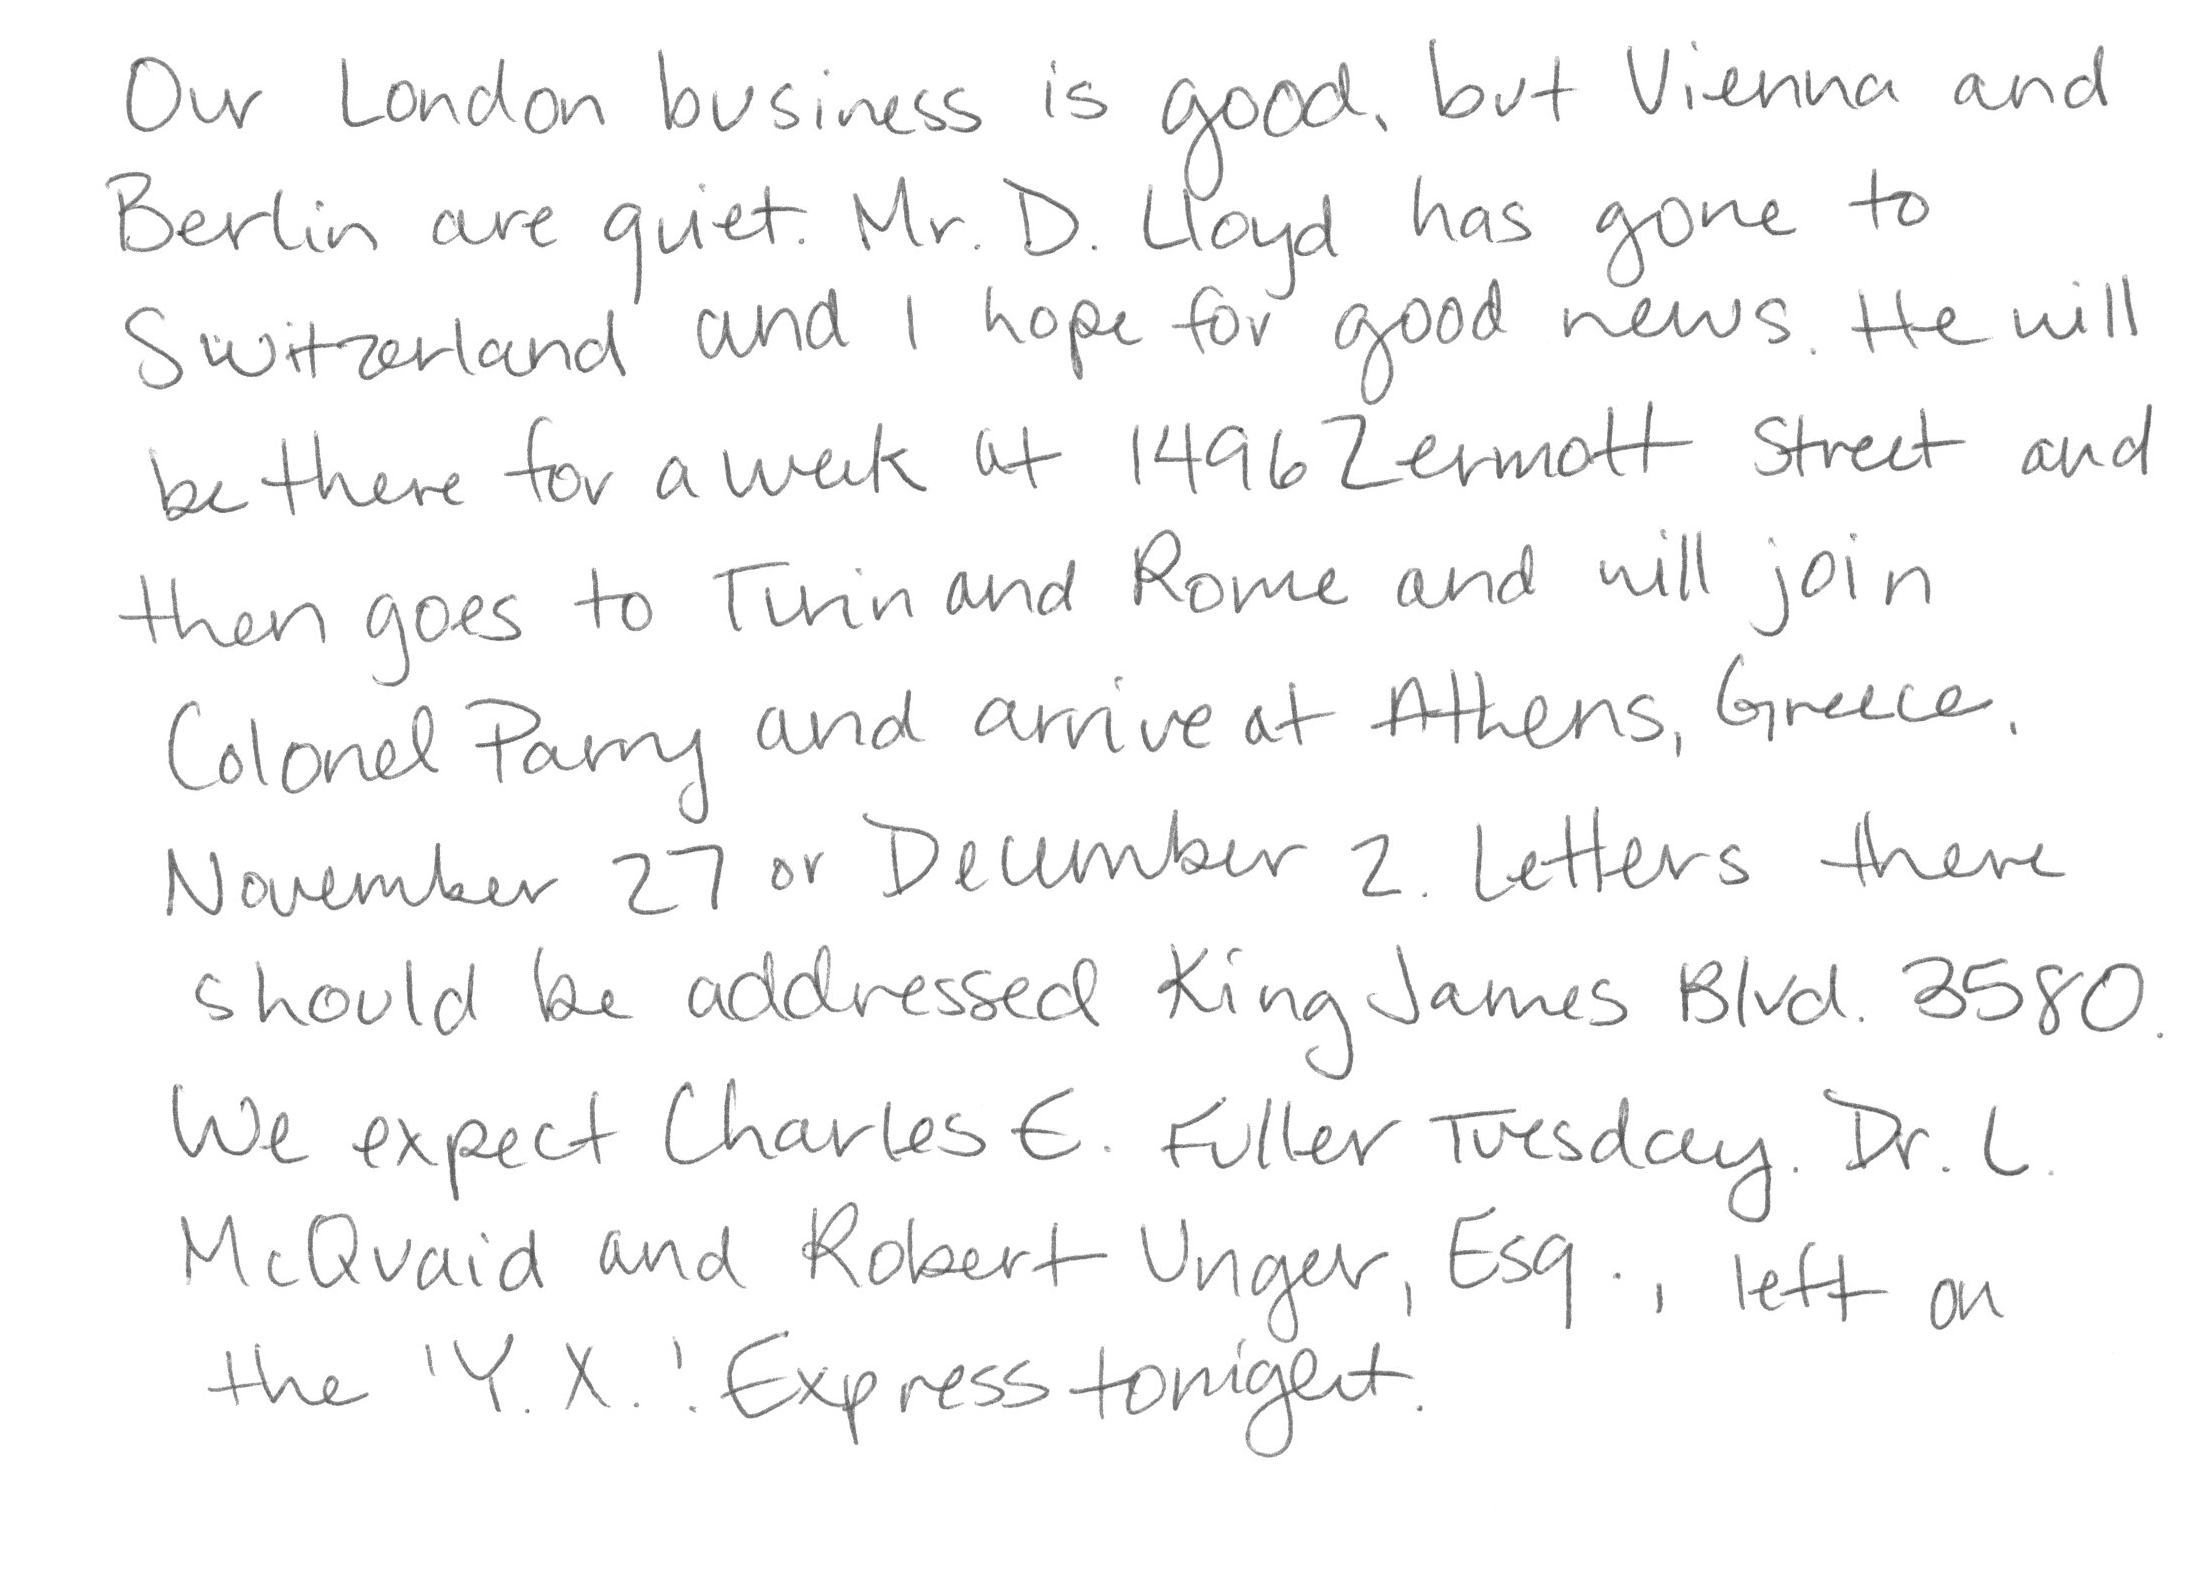 Our London business is good, but Vienna and
Berlin are quiet. Mr. D. Lloyd has gone to
Switzerland and I hope for good news. He will
be there for a week at 1496 Zermott Street and
then goes to Turin and Rome and will join
Colonel Parry and arrive at Athens, Greece.
November 27 or December 2. Letters there
should be addressed King James Blvd. 3580.
We expect Charles E. Fuller Tuesday. Dr. L.
McQuaid and Robert Unger, Esq., left on
the 'Y. X.' Express tonight.